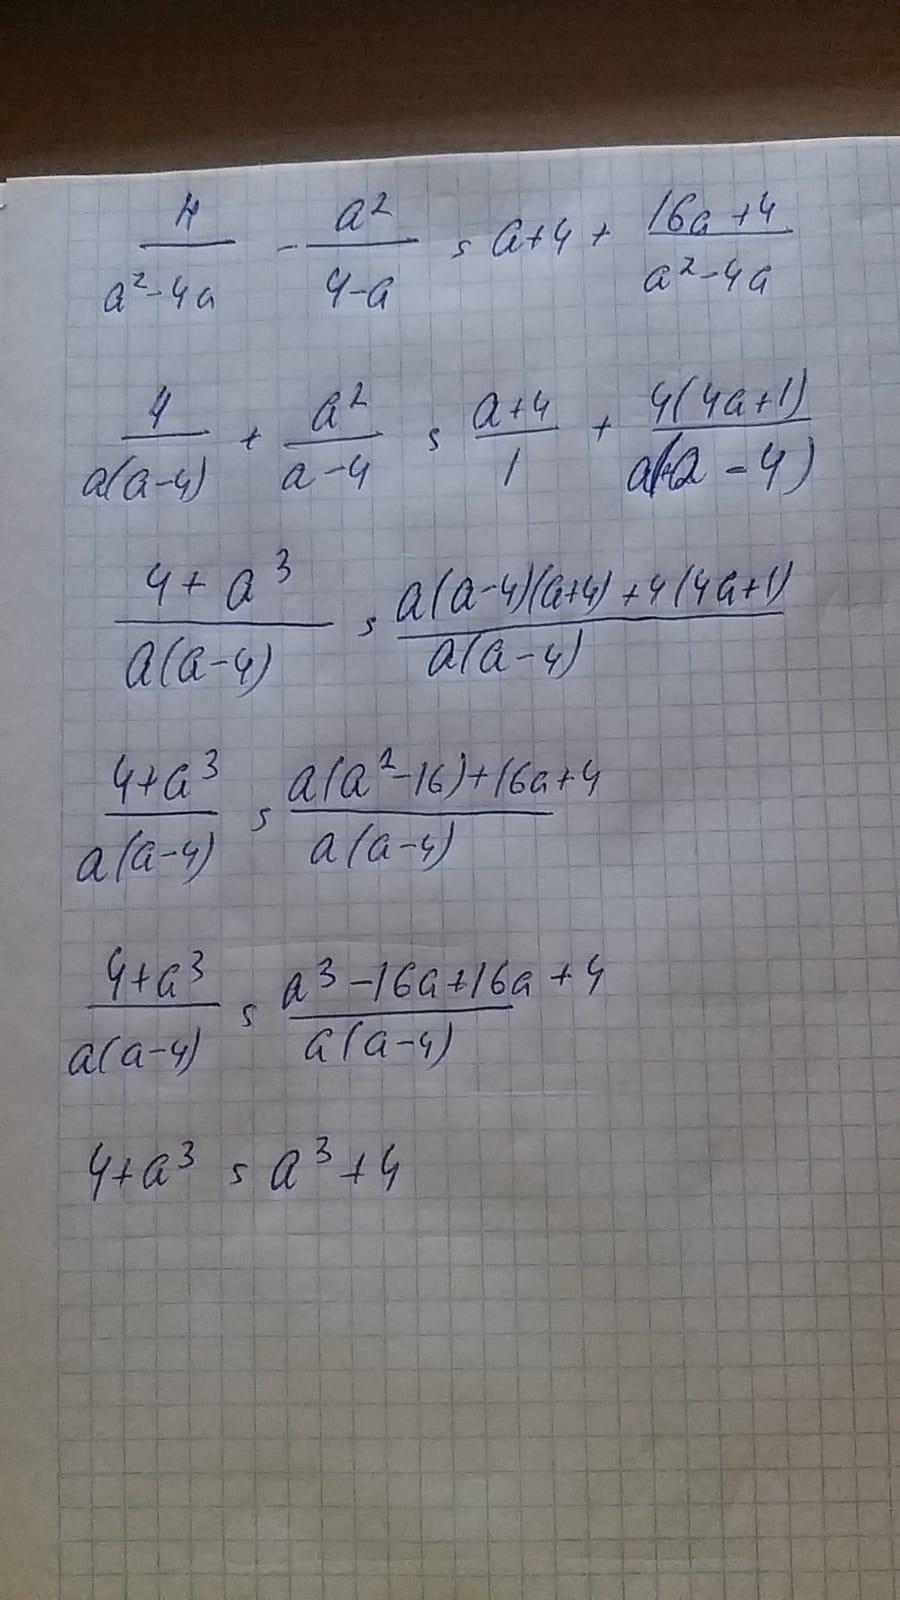 4/(a²-4a) - a²/(4-a) = a+4 + (16a+4)/(a²-4a)
4/(a(a-4)) + a²/(a-4) = (a+4)/1 + 4(4a+1)/(a(a-4))
(4+a³)/(a(a-4)) = (a(a-4)(a+4)+4(4a+1))/(a(a-4))
(4+a³)/(a(a-4)) = (a(a²-16)+16a+4)/(a(a-4))
(4+a³)/(a(a-4)) = (a³-16a+16a+4)/(a(a-4))
4+a³ = a³+4